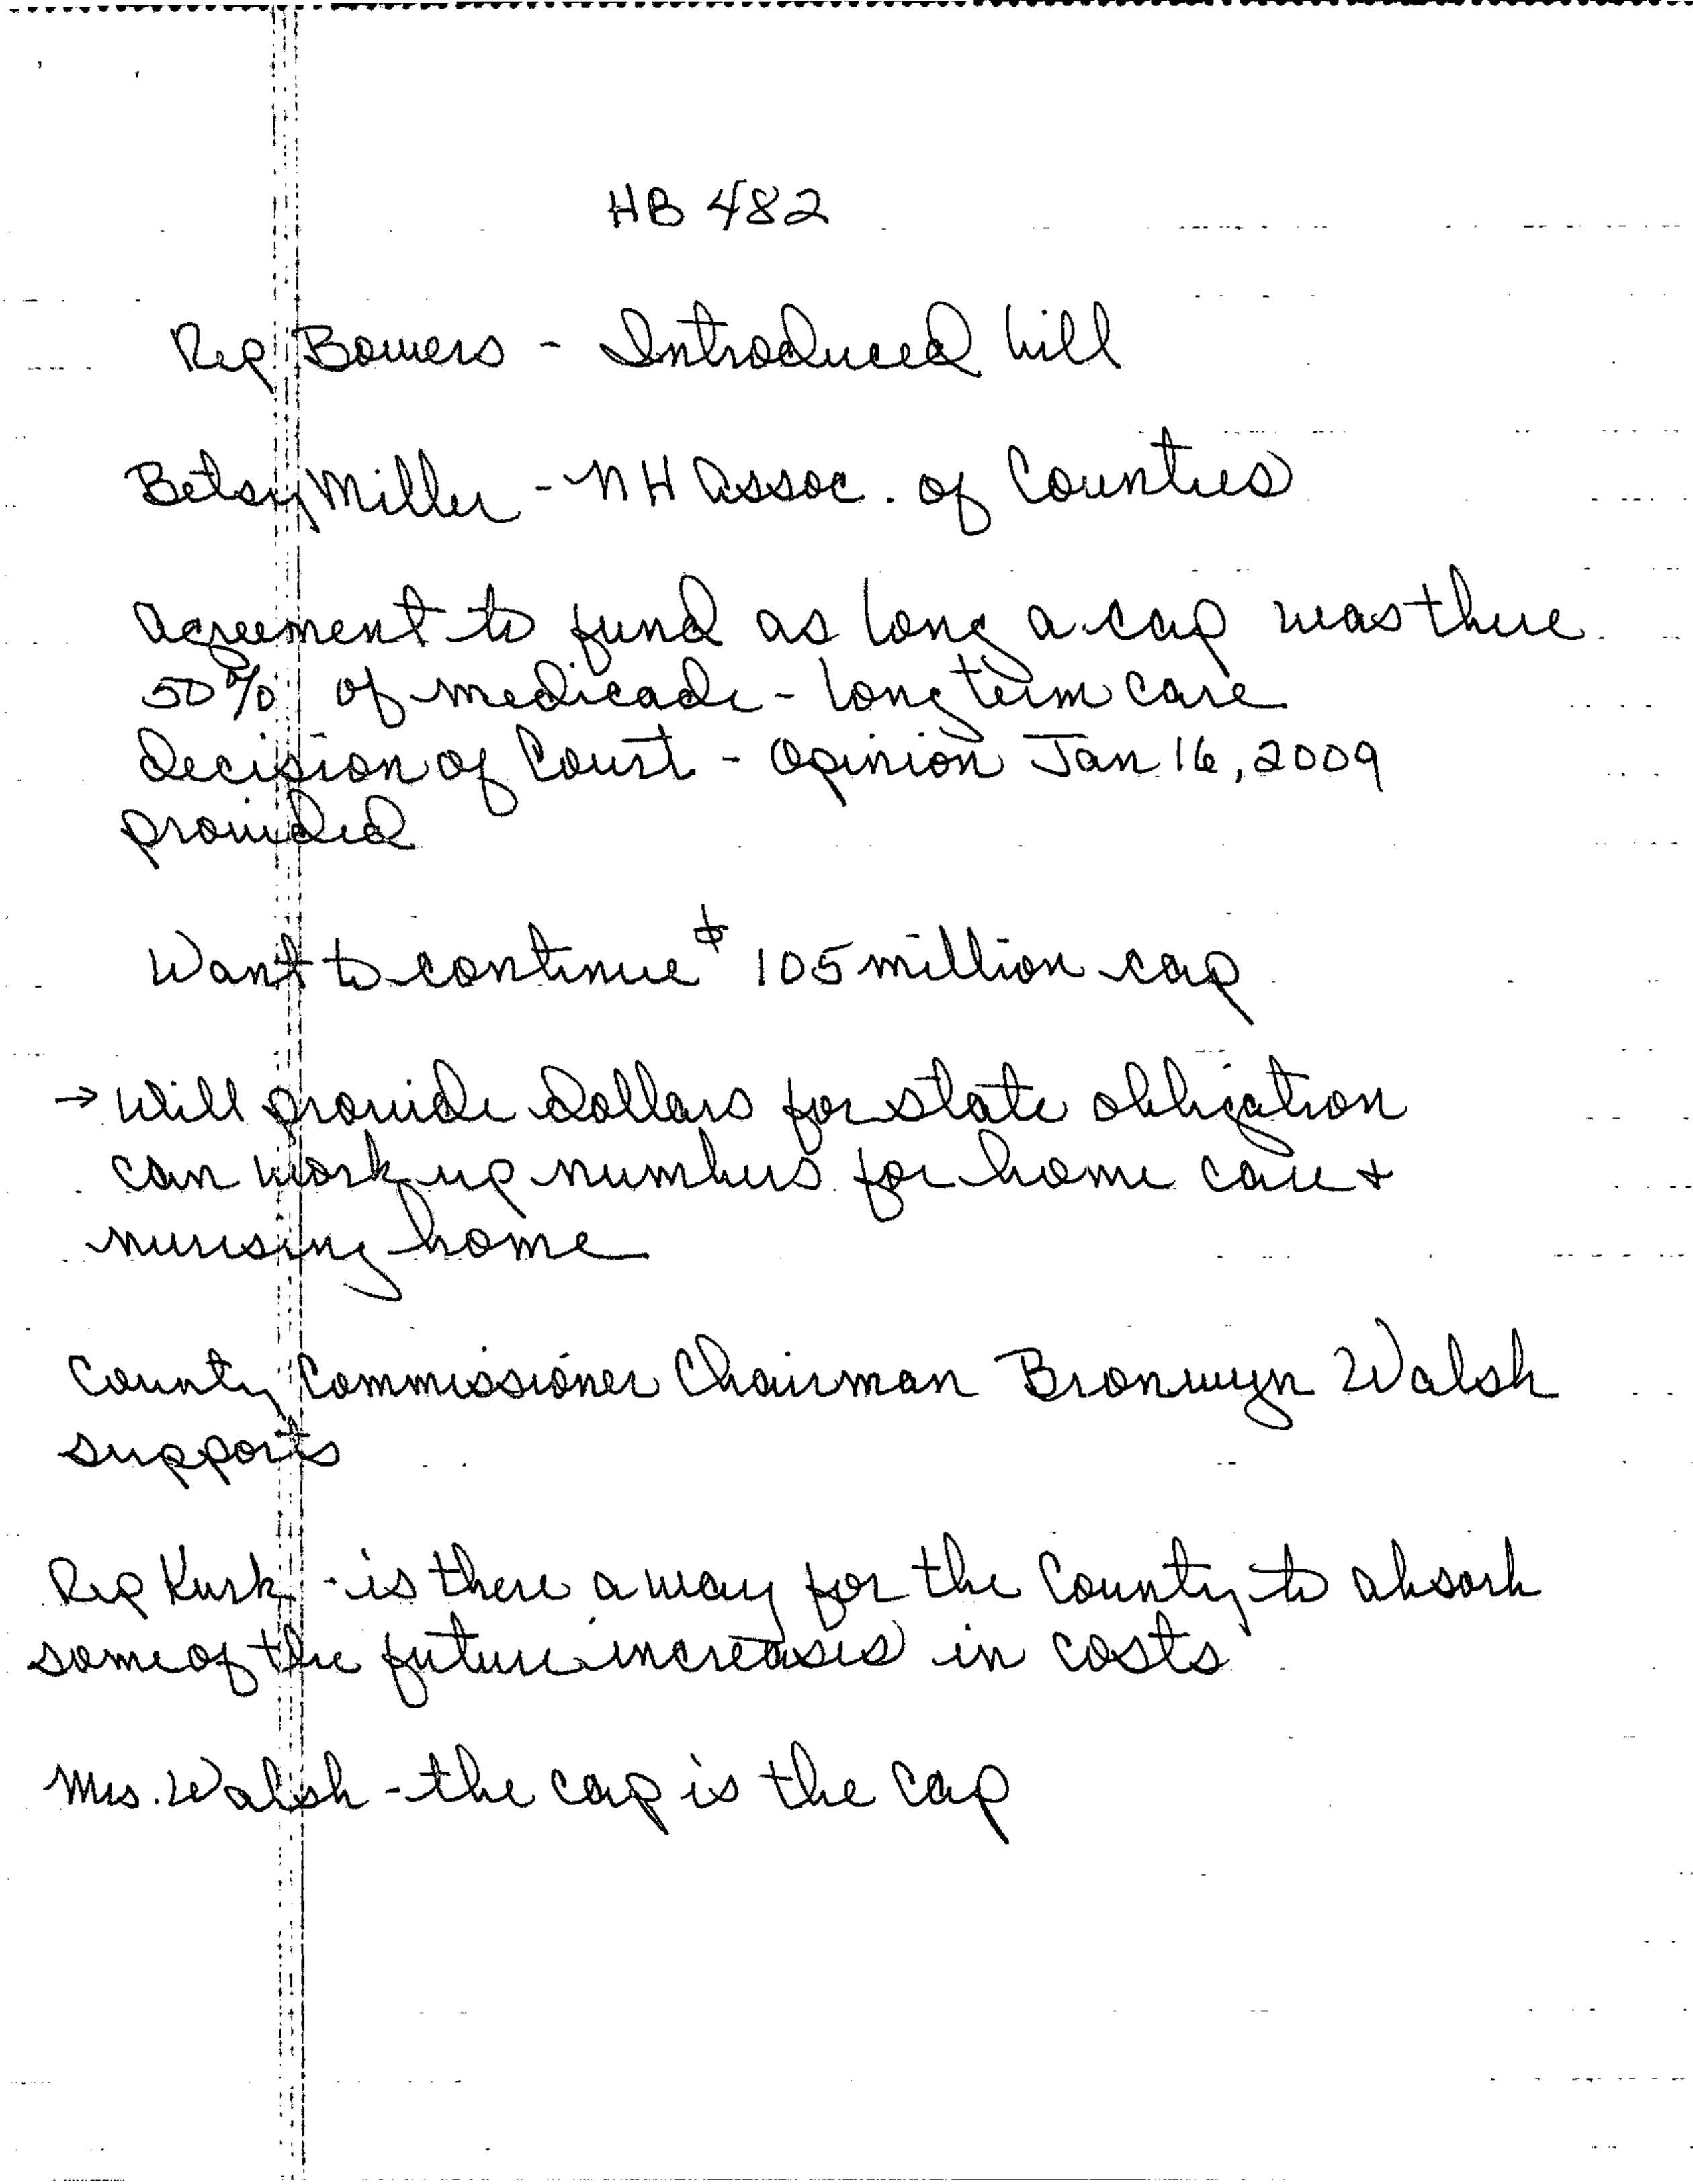 HB 482
Rep Bowers - Introduced bill
Betsy Miller - NH Assoc. of Counties
agreement to fund as long a cap was there
50% of medicade - long term care
decision of Court - Opinion Jan 16, 2009
provided
Want to continue $ 105 million cap
→ Will provide dollars for state obligation
can work up numbers for home care +
nursing home
County Commissioner Chairman Bronwyn Walsh
supports
Rep Kurk - is there a way for the County to absorb
some of the future increases in costs
Mrs. Walsh - the cap is the cap